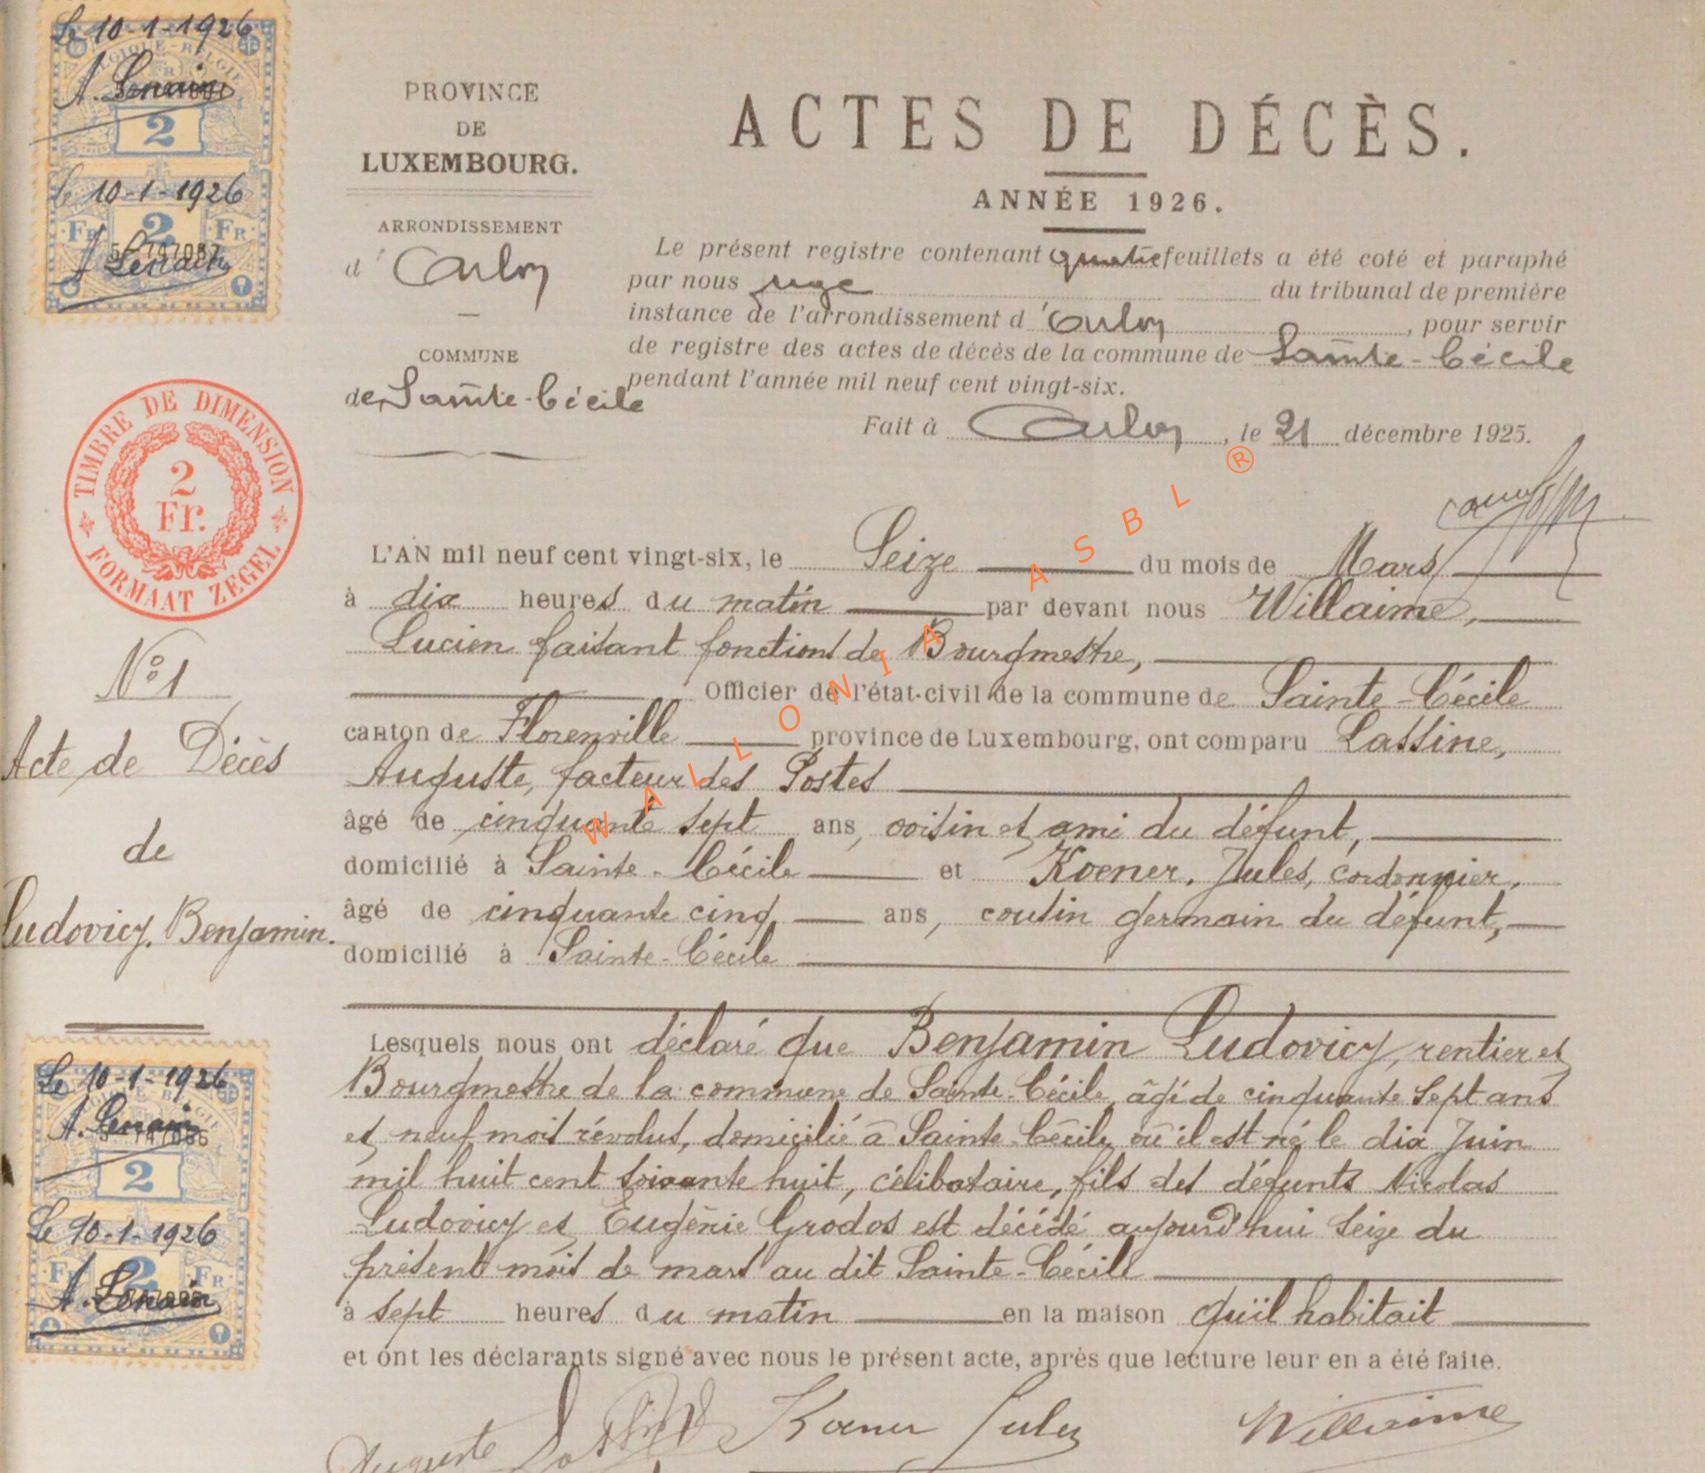 Le 10-1-1926
BELGIQUE-BELGIE
A. Lenain
2
Le 10-1-1926
Fr 2 Fr
A Lenain
PROVINCE
DE
LUXEMBOURG.
ARRONDISSEMENT
d'Arlon
COMMUNE
de Sainte-Cécile
ACTES DE DÉCÈS.
ANNÉE 1926.
Le présent registre contenant quatre feuillets a été coté et paraphé
par nous juge du tribunal de première
instance de l'arrondissement d'Arlon, pour servir
de registre des actes de décès de la commune de Sainte-Cécile
pendant l'année mil neuf cent vingt-six.
Fait à Arlon, le 21 décembre 1925.
TIMBRE DE DIMENSION
2
Fr.
FORMAAT ZEGEL
N° 1
Acte de Décès
de
Ludovicy. Benjamin.
L'AN mil neuf cent vingt-six, le Seize du mois de Mars
à dix heures du matin par devant nous Willaime,
Lucien faisant fonctions de Bourgmestre,
Officier de l'état-civil de la commune de Sainte-Cécile
canton de Florenville province de Luxembourg, ont comparu Lassine,
Auguste, facteur des Postes
âgé de cinquante sept ans, voisin et ami du défunt,
domicilié à Sainte-Cécile et Koener. Jules, cordonnier.
âgé de cinquante cinq ans, cousin germain du défunt,
domicilié à Sainte-Cécile
Lesquels nous ont déclaré que Benjamin Ludovicy, rentier et
Bourgmestre de la commune de Sainte-Cécile, âgé de cinquante sept ans
et neuf mois révolus, domicilié à Sainte-Cécile où il est né le dix Juin
mil huit cent soixante huit, célibataire, fils des défunts Nicolas
Ludovicy et Eugènie Grodos est décédé aujourd'hui seize du
présent mois de mars au dit Sainte-Cécile
à sept heures du matin en la maison qu'il habitait
et ont les déclarants signé avec nous le présent acte, après que lecture leur en a été faite.
Le 10-1-1926
A. Lenain
2
Le 10-1-1926
Fr 2 Fr
A. Lenain
Auguste Lassine Koener Jules Willaime
WALLONIA ASBL ®